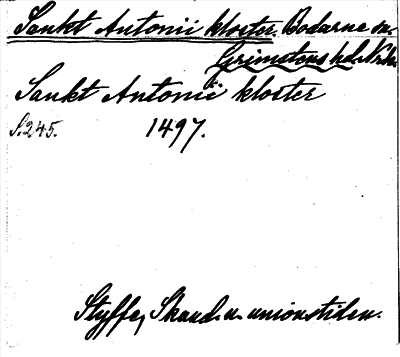 Sankt Antonii kloster. Bodarne sn.
Grimstens hd. Nrke.
Sankt Antonii kloster
S. 245. 1497.
Styffe, Skand. u. unionstiden.